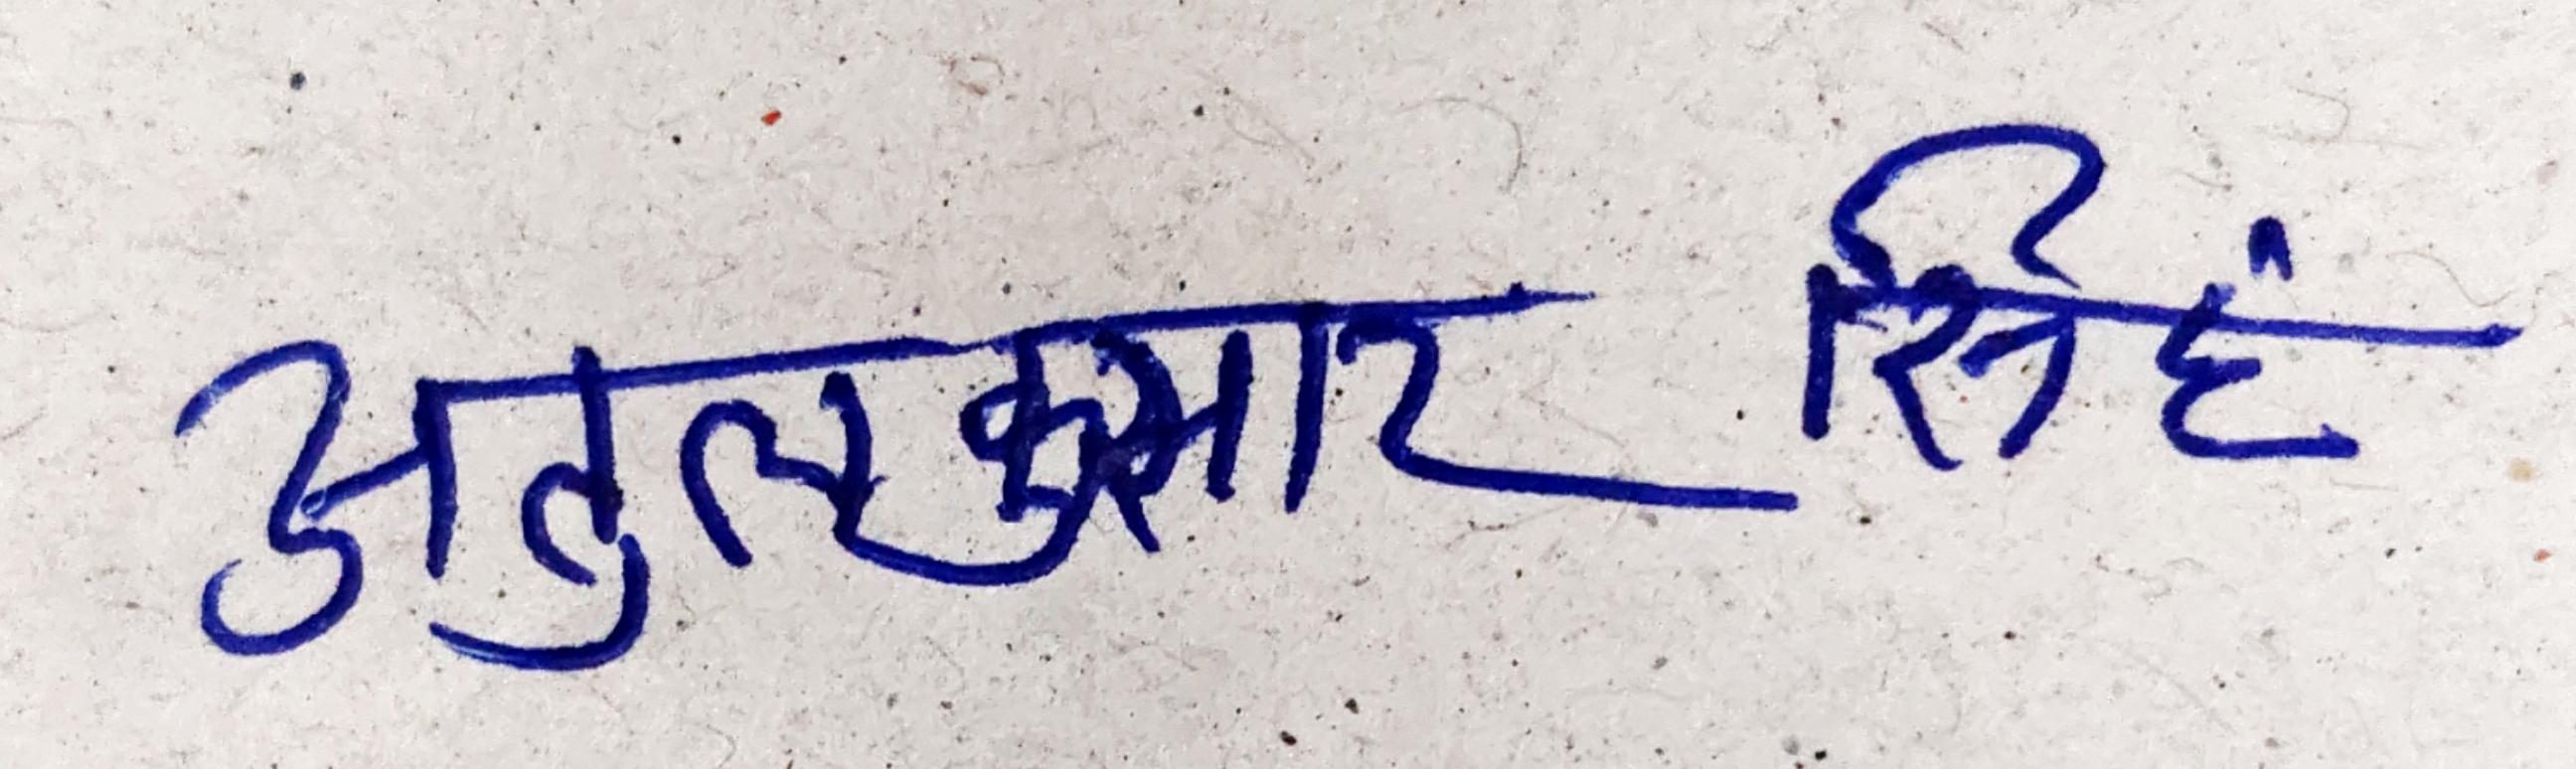 अतुल कुमार सिहं